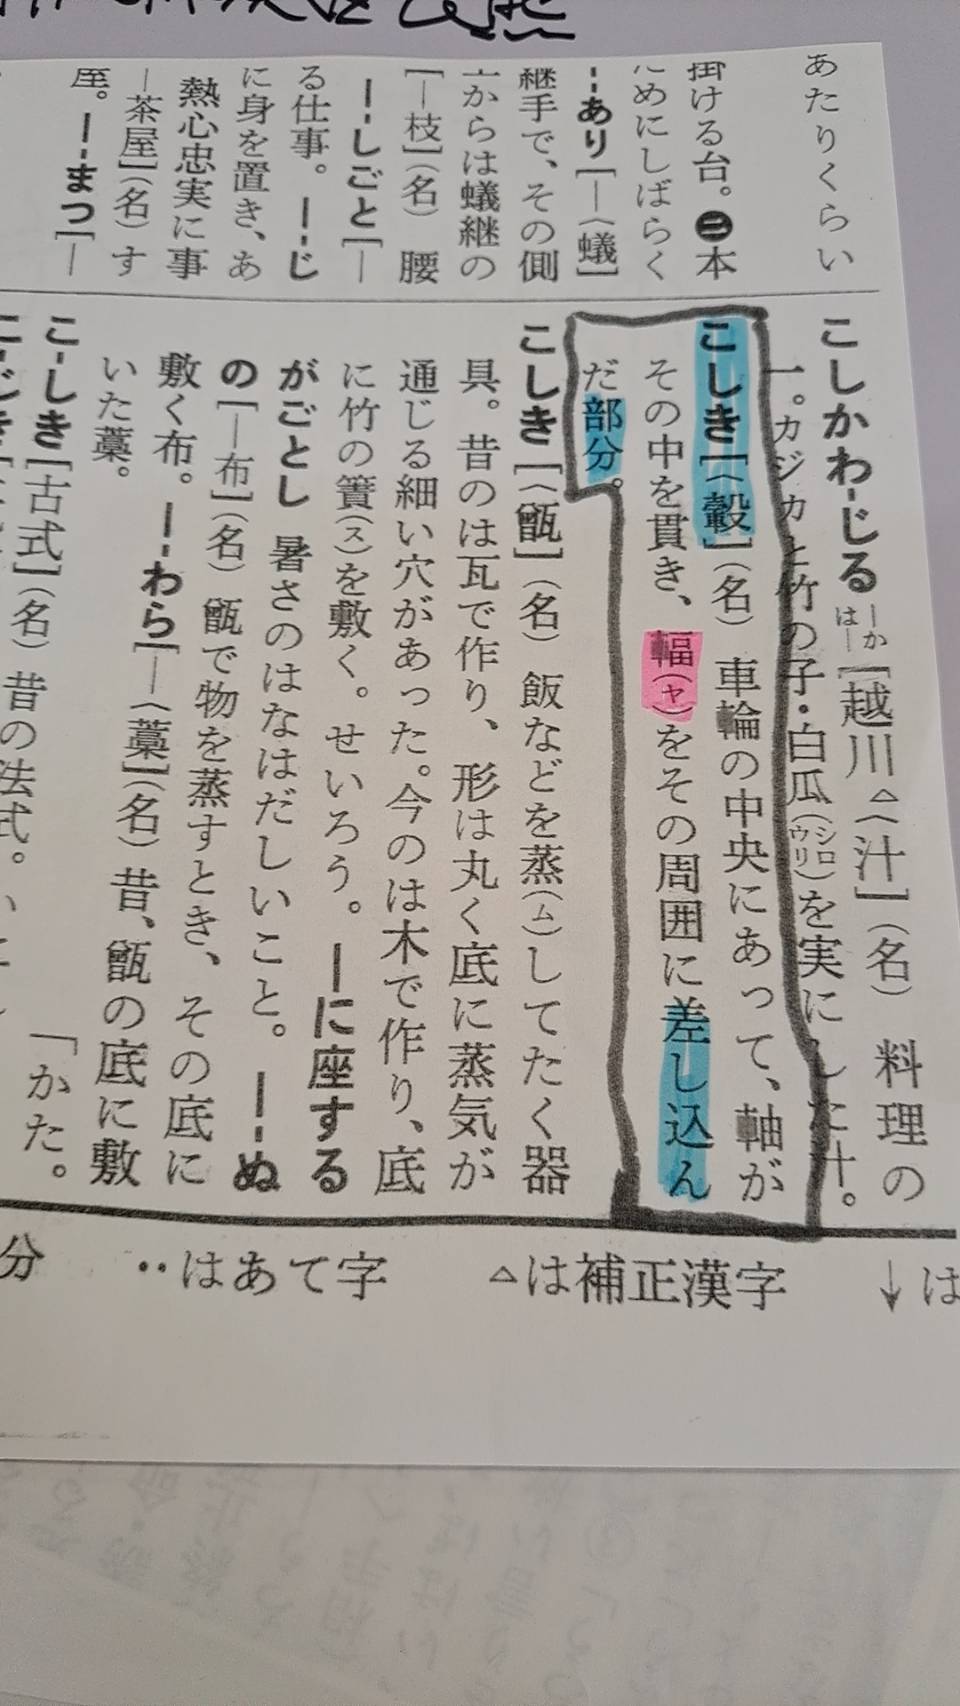 あたりくらい
掛ける台。㊁本
ためにしばらく
--あり[―〈蟻]
継手で、その側
からは蟻継の
[―枝](名) 腰
--しごと[―
る仕事。 --じ
に身を置き、あ
熱心忠実に事
―茶屋](名) す
座。 --まつ[―
こしかわ-じる ―か は― [越川△〈汁](名) 料理の
一。カジカと竹の子・白瓜(シロウリ)を実にした汁。
こしき[〈轂](名) 車輪の中央にあって、軸が
その中を貫き、輻(ヤ)をその周囲に差し込ん
だ部分。
こしき[〈甑](名) 飯などを蒸(ム)してたく器
具。昔のは瓦で作り、形は丸く底に蒸気が
通じる細い穴があった。今のは木で作り、底
に竹の簀(ス)を敷く。せいろう。 ―に座する
がごとし 暑さのはなはだしいこと。 --ぬ
の[―布](名) 甑で物を蒸すとき、その底に
敷く布。 --わら[―〈藁](名) 昔、甑の底に敷
いた藁。
こ-しき[古式](名) 昔の法式。 「かた。
↓は
△は補正漢字
‥はあて字
分